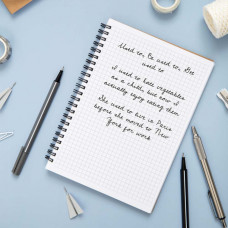 Used to, Be used to, Get
used to
I used to hate vegetables
as a child, but now I
actually enjoy eating them
She used to live in Paris
before she moved to New
York for work